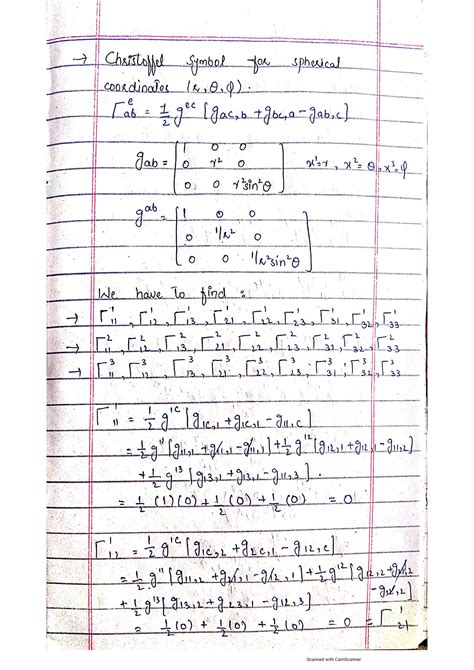 → Christoffel Symbol for spherical
coordinates (r, θ, φ).
Γᵉ_ab = 1/2 g^ec [gac,b + gbc,a - gab,c]
gab = [1 0 0
0 r² 0
0 0 r²sin²θ] x¹=r, x²=θ, x³=φ
g^ab = [1 0 0
0 1/r² 0
0 0 1/r²sin²θ]
We have to find :
→ Γ¹₁₁, Γ¹₁₂, Γ¹₁₃, Γ¹₂₁, Γ¹₂₂, Γ¹₂₃, Γ¹₃₁, Γ¹₃₂, Γ¹₃₃
→ Γ²₁₁, Γ²₁₂, Γ²₁₃, Γ²₂₁, Γ²₂₂, Γ²₂₃, Γ²₃₁, Γ²₃₂, Γ²₃₃
→ Γ³₁₁, Γ³₁₂, Γ³₁₃, Γ³₂₁, Γ³₂₂, Γ³₂₃, Γ³₃₁, Γ³₃₂, Γ³₃₃
Γ¹₁₁ = 1/2 g^1c [g1c,1 + g1c,1 - g11,c]
= 1/2 g¹¹ [g11,1 + g11,1 - g11,1] + 1/2 g¹² [g12,1 + g12,1 - g11,2]
+ 1/2 g¹³ [g13,1 + g13,1 - g11,3].
= 1/2 (1)(0) + 1/2 (0) + 1/2 (0) = 0
Γ¹₁₂ = 1/2 g^1c [g1c,2 + g2c,1 - g12,c]
= 1/2 g¹¹ [g11,2 + g21,1 - g12,1] + 1/2 g¹² [g12,2 + g22,1
- g12,2]
+ 1/2 g¹³ [g13,2 + g23,1 - g12,3]
= 1/2 (0) + 1/2 (0) + 1/2 (0) = 0 = Γ¹₂₁
Scanned with CamScanner